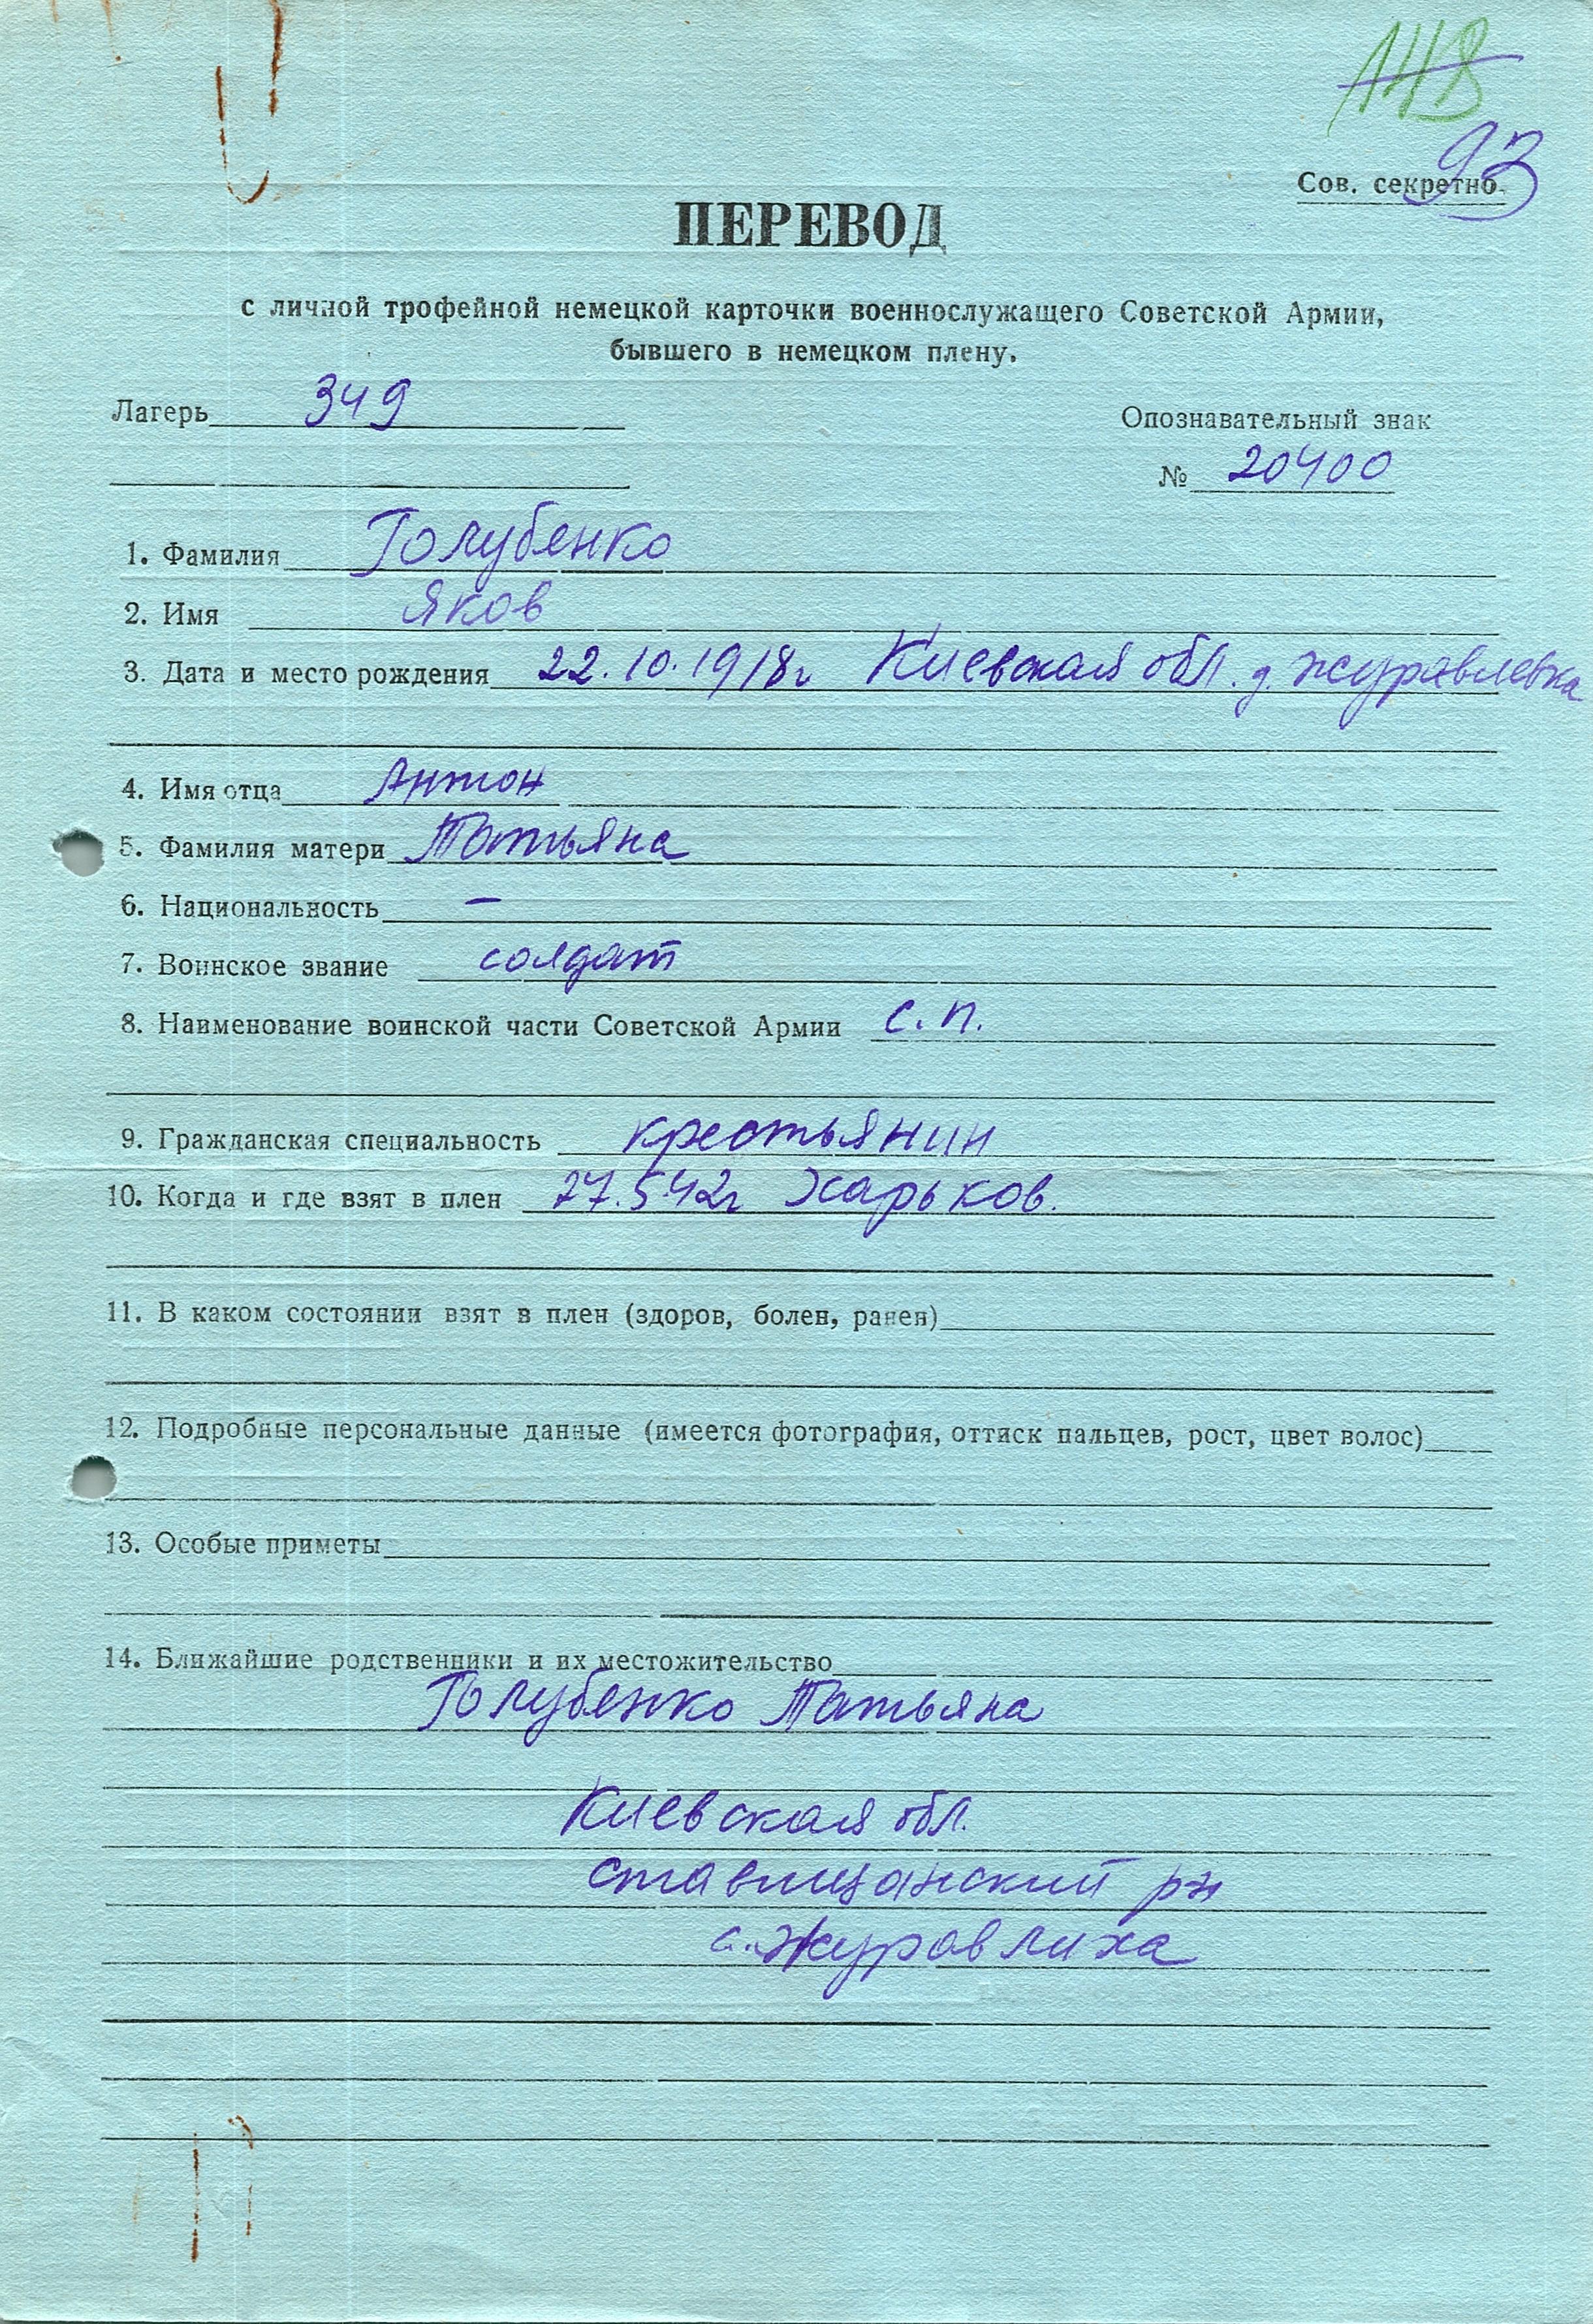 93
Сов. секретно.
ПЕРЕВОД
с личной трофейной немецкой карточки военнослужащего Советской Армии,
бывшего в немецком плену.
Лагерь 349
Опознавательный знак
№ 20400
1. Фамилия Голубенко
2. Имя Яков
3. Дата и место рождения 22.10.1918г Киевская обл. д. Журавлевка
4. Имя отца Антон
5. Фамилия матери Татьяна
6. Национальность —
7. Воинское звание солдат
8. Наименование воинской части Советской Армии с.п.
9. Гражданская специальность крестьянин
10. Когда и где взят в плен 27.5.42г Харьков.
11. В каком состоянии взят в плен (здоров, болен, ранен)
12. Подробные персональные данные (имеется фотография, оттиск пальцев, рост, цвет волос)
13. Особые приметы
14. Ближайшие родственники и их местожительство
Голубенко Татьяна
Киевская обл.
Ставищанский рн
с. Журовлиха